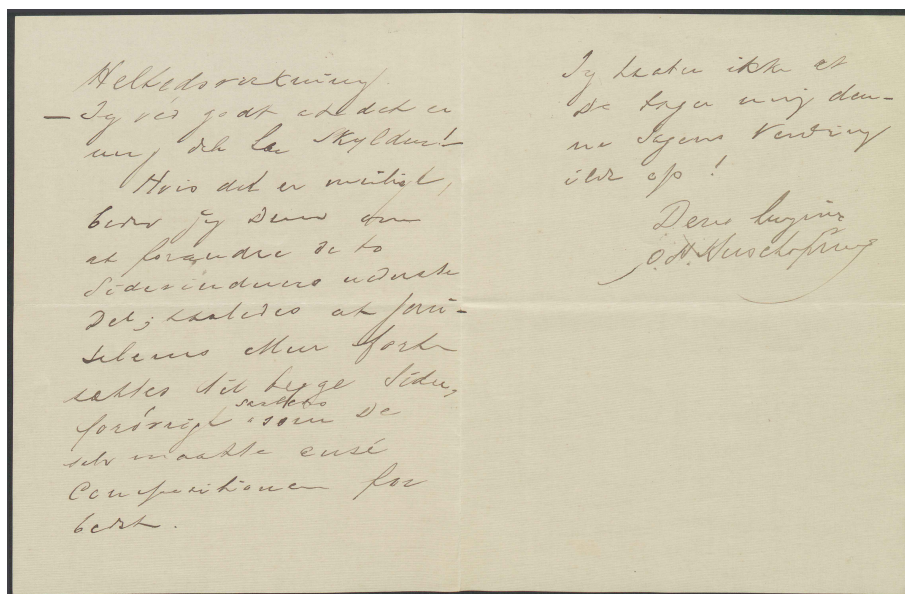 Helhedsvirkning.
— Jeg véd godt at det er
mig der har Skylden! —
Hvis det er muligt,
beder jeg Dem om
at forandre de to
Sidevinduers nederste
Del; saaledes at
Mur fort-
sættes til begge Sider,
forövrigt saaledes som De
selv maatte ansé
Compositionen for
bedst.
Jeg haaber ikke at
De tager mig den-
ne Sagens Vending
ilde op!
Deres